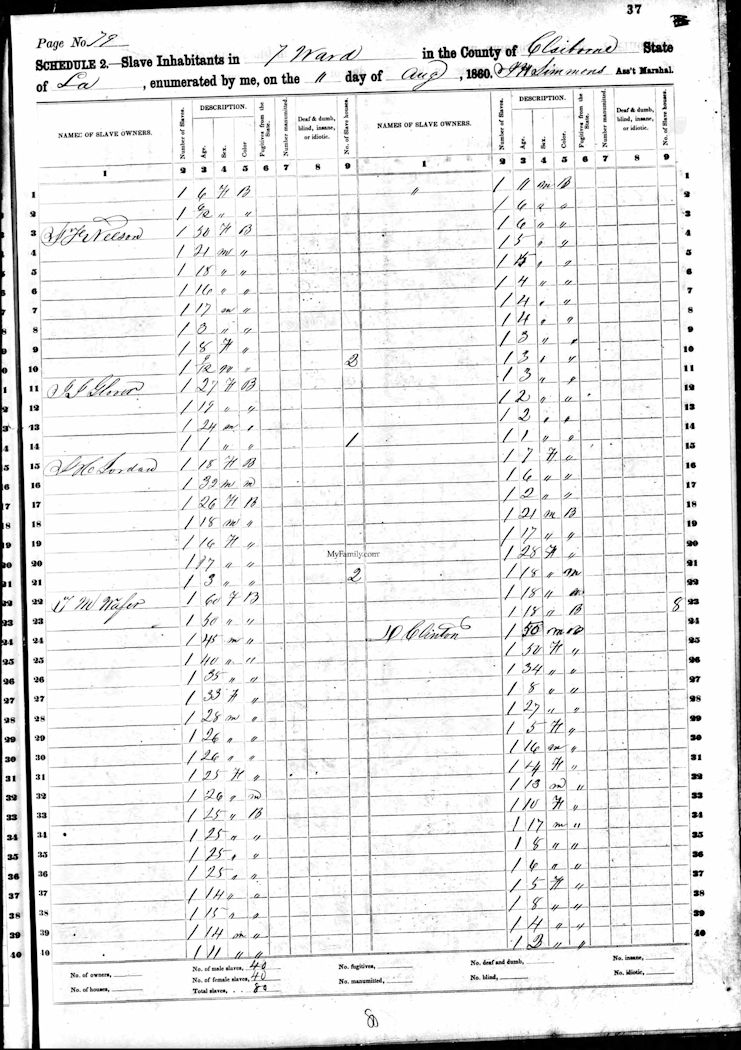 37
Page No. 79
SCHEDULE 2.—Slave Inhabitants in 7 Ward in the County of Claiborne State
of La, enumerated by me, on the 11 day of Aug, 1860. Simmons Ass't Marshal.
NAMES OF SLAVE OWNERS. Number of Slaves. DESCRIPTION. Age. Sex. Color. Fugitives from the State. Number manumitted. Deaf & dumb, blind, insane, or idiotic. No. of Slave houses. NAMES OF SLAVE OWNERS. Number of Slaves. DESCRIPTION. Age. Sex. Color. Fugitives from the State. Number manumitted. Deaf & dumb, blind, insane, or idiotic. No. of Slave houses.
1 2 3 4 5 6 7 8 9 1 2 3 4 5 6 7 8 9
1 1 6 F B " 1 11 m B 1
2 1 6/12 " " 1 6 " " 2
3 Nelson 1 30 F B 1 6 " " 3
4 1 21 m " 1 5 " " 4
5 1 18 " " 1 " " 5
6 1 16 " " 1 4 " " 6
7 1 17 m " 1 4 " " 7
8 1 3 " " 1 4 " " 8
9 1 8 F " 1 3 " " 9
10 1 9/12 m " 2 1 3 " " 10
11 Glover 1 27 F B 1 3 " " 11
12 1 19 " " 1 2 " " 12
13 1 24 m " 1 2 " " 13
14 1 1 " " 1 1 1 " " 14
15 Jordan 1 18 F B 1 7 F " 15
16 1 32 m m 1 6 " " 16
17 1 26 F B 1 2 " " 17
18 1 18 m " 1 21 m B 18
19 1 16 F " 1 17 " " 19
20 1 " " MyFamily.com 1 28 F " 20
21 1 3 " " 2 1 18 " m 21
22 M Wafer 1 60 F B 1 18 " 22
23 1 50 " " 1 18 " B 8 23
24 1 45 m " Clinton 1 50 m 24
25 1 40 " " 1 50 F " 25
26 1 35 " " 1 34 " " 26
27 1 33 F " 1 8 " " 27
28 1 28 m " 1 27 " " 28
29 1 26 " " 1 5 F " 29
30 1 26 " " 1 16 m " 30
31 1 25 F " 1 F " 31
32 1 26 " m 1 13 m " 32
33 1 25 " B 1 10 F " 33
34 1 25 " " 1 17 m " 34
35 1 25 " " 1 8 " " 35
36 1 25 " " 1 6 " " 36
37 1 14 " " 1 5 F " 37
38 1 15 " " 1 8 " " 38
39 1 14 m " 1 4 " " 39
40 1 11 " " 1 " " 40
No. of owners, No. of male slaves, 40 No. fugitives, No. deaf and dumb, No. insane,
No. of houses, No. of female slaves, 40 No. manumitted, No. blind, No. idiotic,
Total slaves, 80
8